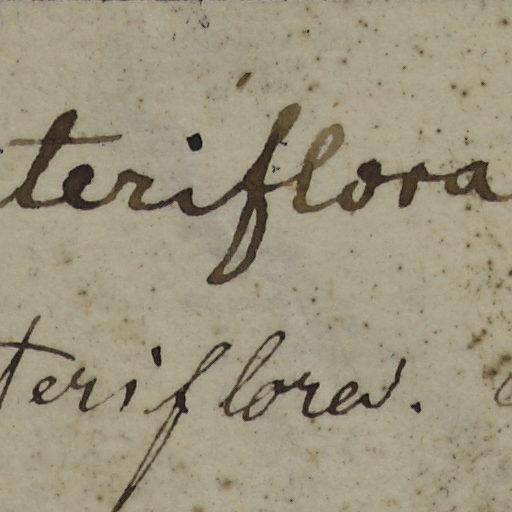 teriflora
teriflora.